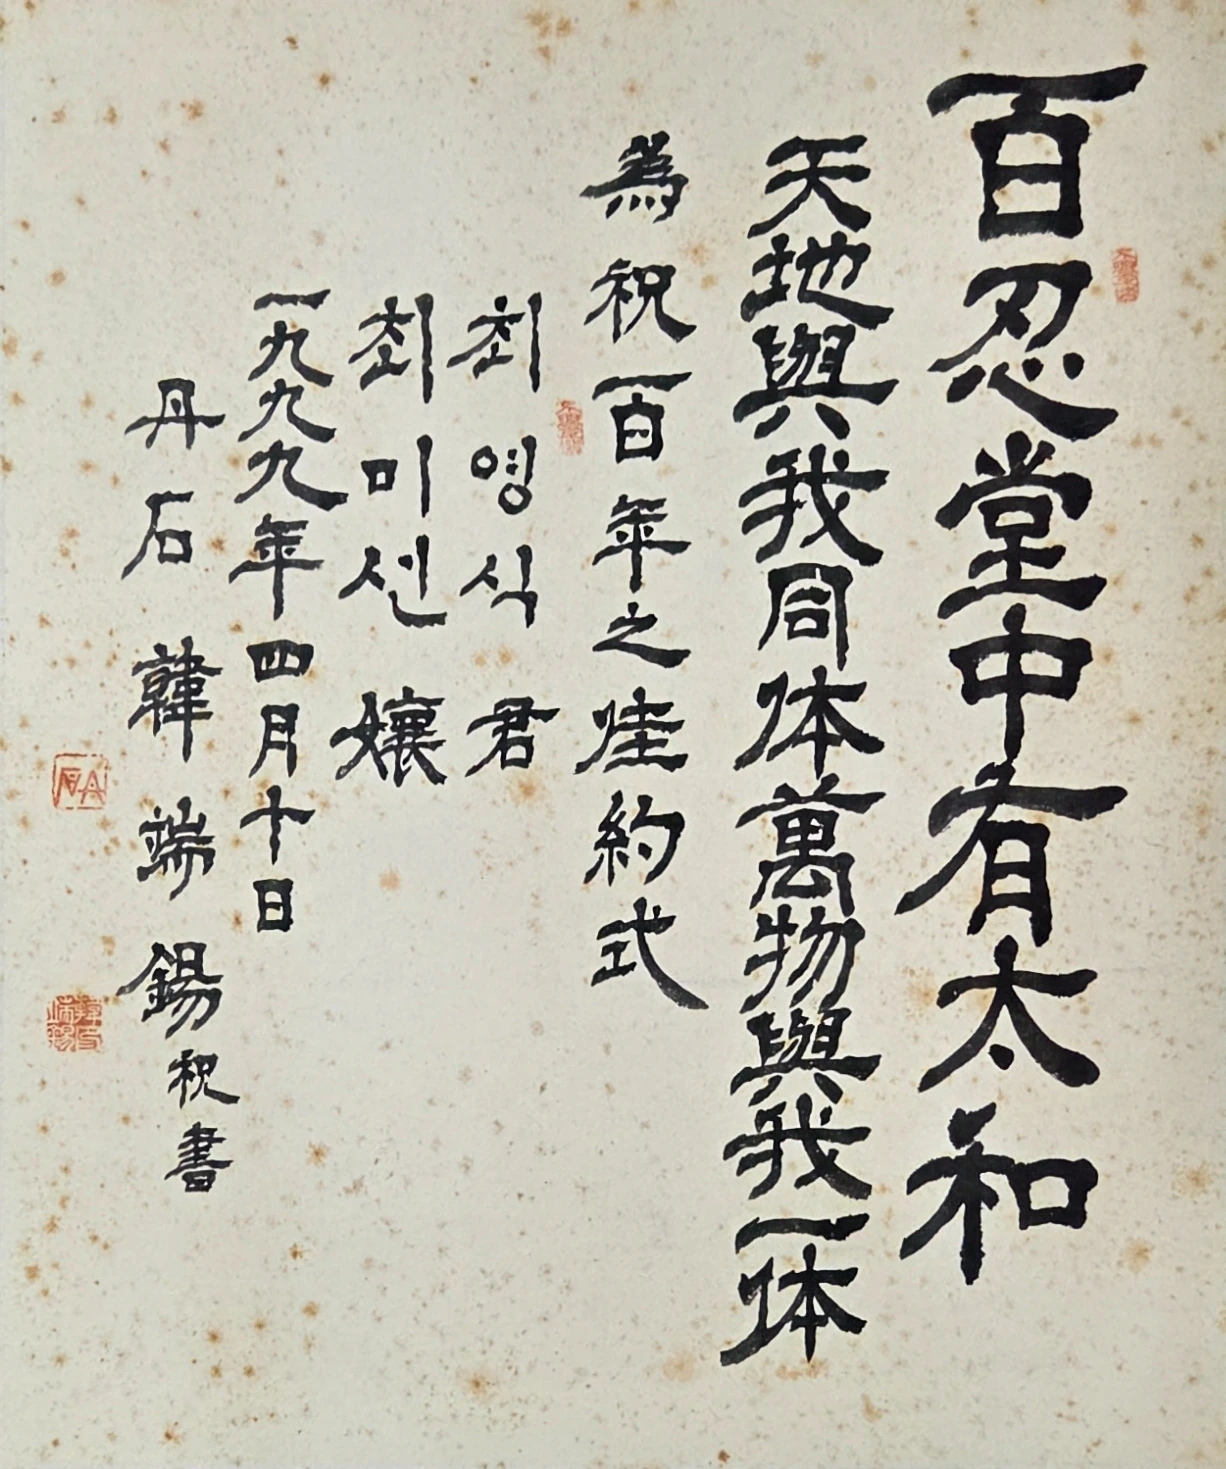 百忍堂中有太和
天地與我同体萬物與我一体
為祝百年之佳約式
최영식 君
최미선 孃
一九九九年四月十日
丹石 韓端錫 祝書
丹石